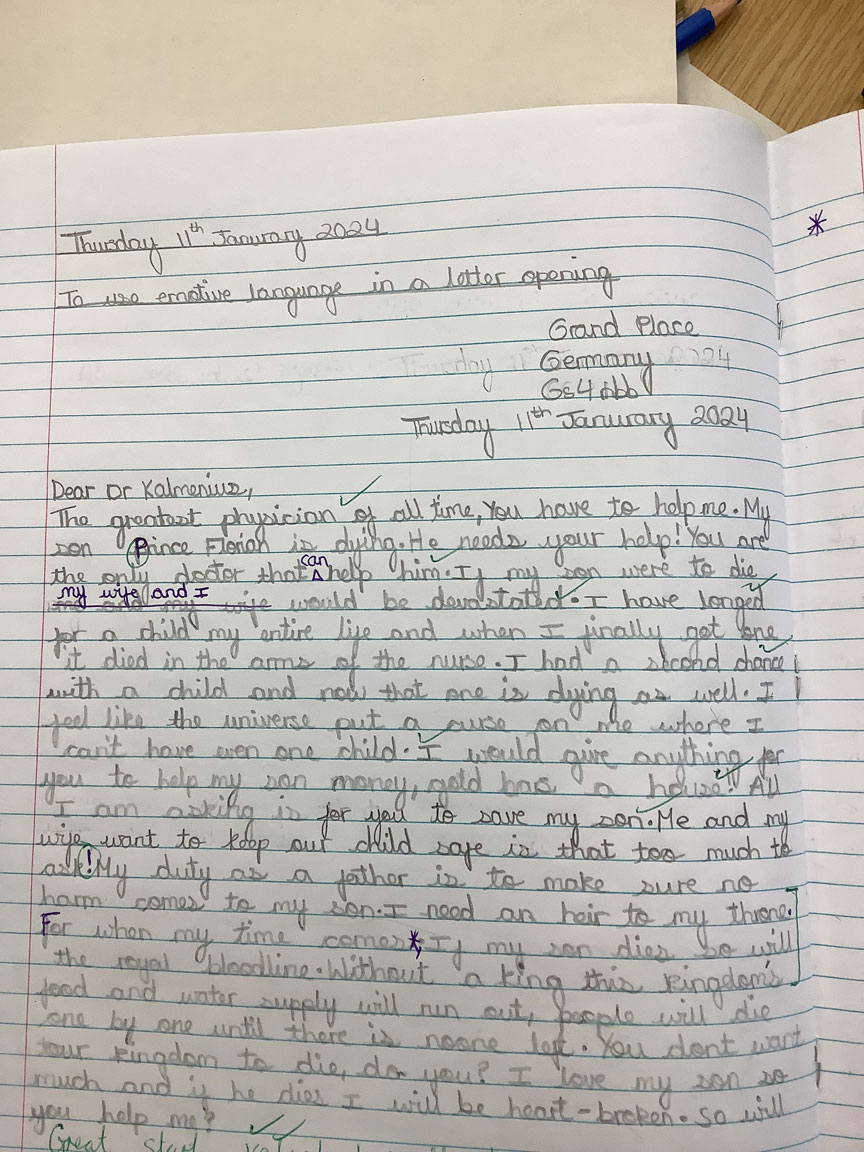 Thursday 11th Janurary 2024
To use emotive language in a letter opening
Grand Place
Germany
Gs4 6bb
Thursday 11th Janurary 2024
Dear Dr Kalmenius,
The greatest physician of all time, You have to help me. My
son Prince Florian is dying. He needs your help! You are
the only doctor that can help him. If my son were to die
my wife and I would be devastated. I have longed
for a child my entire life and when I finally got one
it died in the arms of the nurse. I had a second chance
with a child and now that one is dying as well. I
feel like the universe put a curse on me where I
can't have even one child. I would give anything for
you to help my son money, gold a house! All
I am asking is for you to save my son. Me and my
wife want to keep our child safe is that too much to
ask! My duty as a father is to make sure no
harm comes to my son. I need an heir to my throne.
For when my time comes*, If my son dies so will
the royal bloodline. Without a king this kingdom's
food and water supply will run out, people will die
one by one until there is noone left. You dont want
kingdom to die, do you? I love my son so
much and if he dies I will be heart-broken. So will
you help me?
Great start